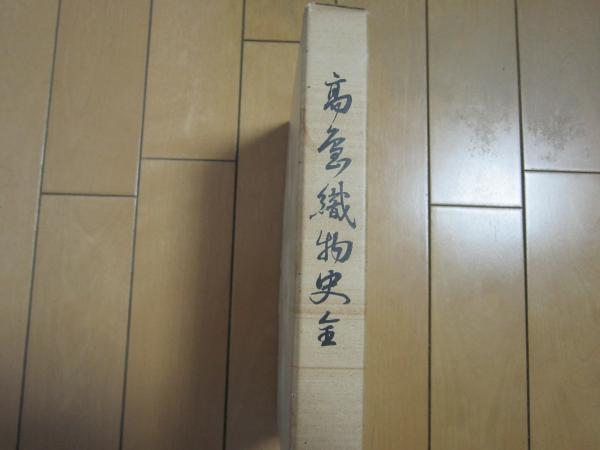 高島織物史全